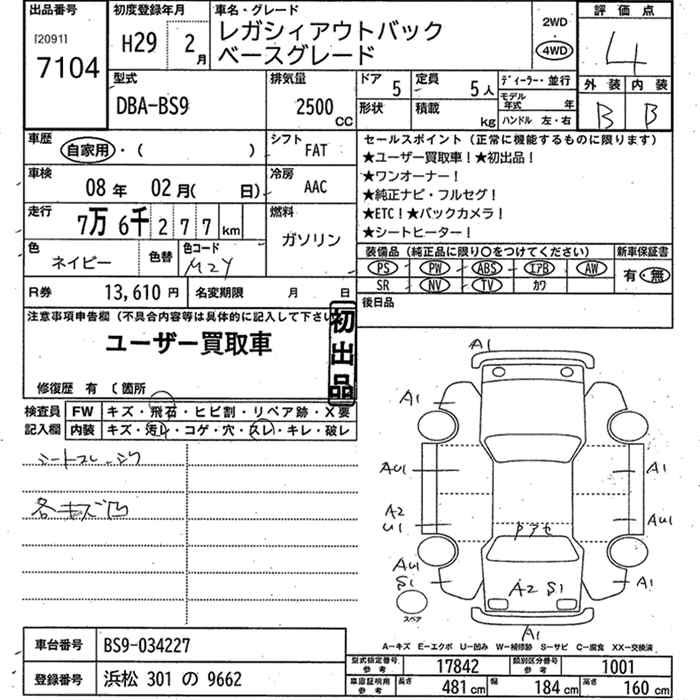 出品番号
[20911
7104
初度登録年月
H29 2月
車名・グレード
レガシィアウトバック
ベースグレード
2WD
4WD
評価点
4
外装 内装
B B
型式
DBA-BS9
排気量
2500 CC
ドア 5
定員 5人
形状
積載 kg
ディーラー・並行
モデル年式 年
ハンドル 左・右
車歴
自家用・( )
シフト FAT
車検
08年 02月( 日)
冷房 AAC
走行
7万6千277km
燃料
ガソリン
色
ネイビー
色替
色コード
M2Y
R券 13,610円
名変期限 月 日
セールスポイント(正常に機能するものに限ります)
★ユーザー買取車!★初出品!
★ワンオーナー!
★純正ナビ・フルセグ!
★ETC!★バックカメラ!
★シートヒーター!
装備品(純正品に限り○をつけてください)
新車保証書
PS PW ABS エアB AW
SR NV TV カワ
有・無
後日品
注意事項申告欄(不具合内容等は具体的に記入して下さい
ユーザー買取車
初出品
修復歴 有 〔箇所
検査員記入欄
FW キズ・飛石・ヒビ割・リペア跡・X要
内装 キズ・汚レ・コゲ・穴・スレ・キレ・破レ
各キズ凹
A1
A1
AU1
A2
U1
AU1
S1
A1
AU1
A1
A2 S1
A1
スペア
A―キズ E―エクボ U―凹み W―補修跡 S―サビ C―腐食 XX―交換済
車台番号 BS9-034227
登録番号 浜松 301 の 9662
型式指定番号 参考 17842
類別区分番号 参考 1001
車庫証明用 参考 長さ 481cm 幅 184cm 高さ 160cm